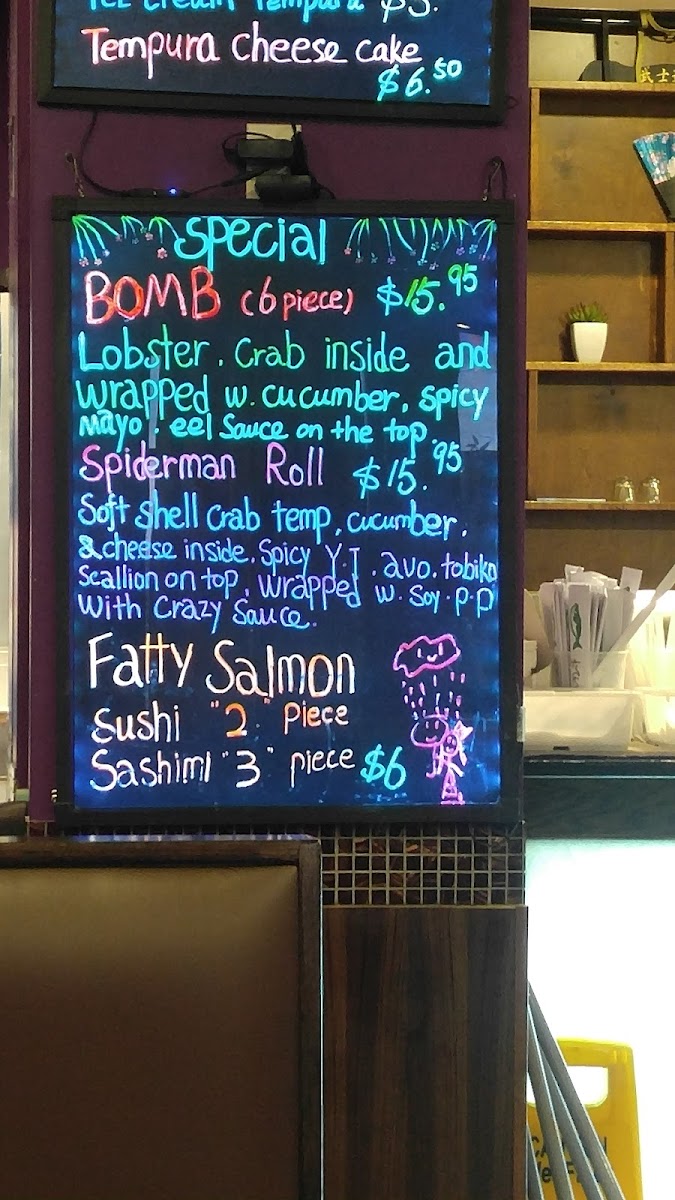 Ice Cream Tempura $5.
Tempura cheese cake
$6.50
Special
BOMB (6 piece) $15.95
Lobster. Crab inside and
wrapped w. cucumber. spicy
Mayo. eel Sauce on the top.
Spiderman Roll $15.95
Soft shell Crab temp. cucumber.
& cheese inside. Spicy Y.T. avo. tobiko
Scallion on top. wrapped w. soy. p.p
with Crazy Sauce.
Fatty Salmon
Sushi "2" Piece
Sashimi "3" piece $6
武士